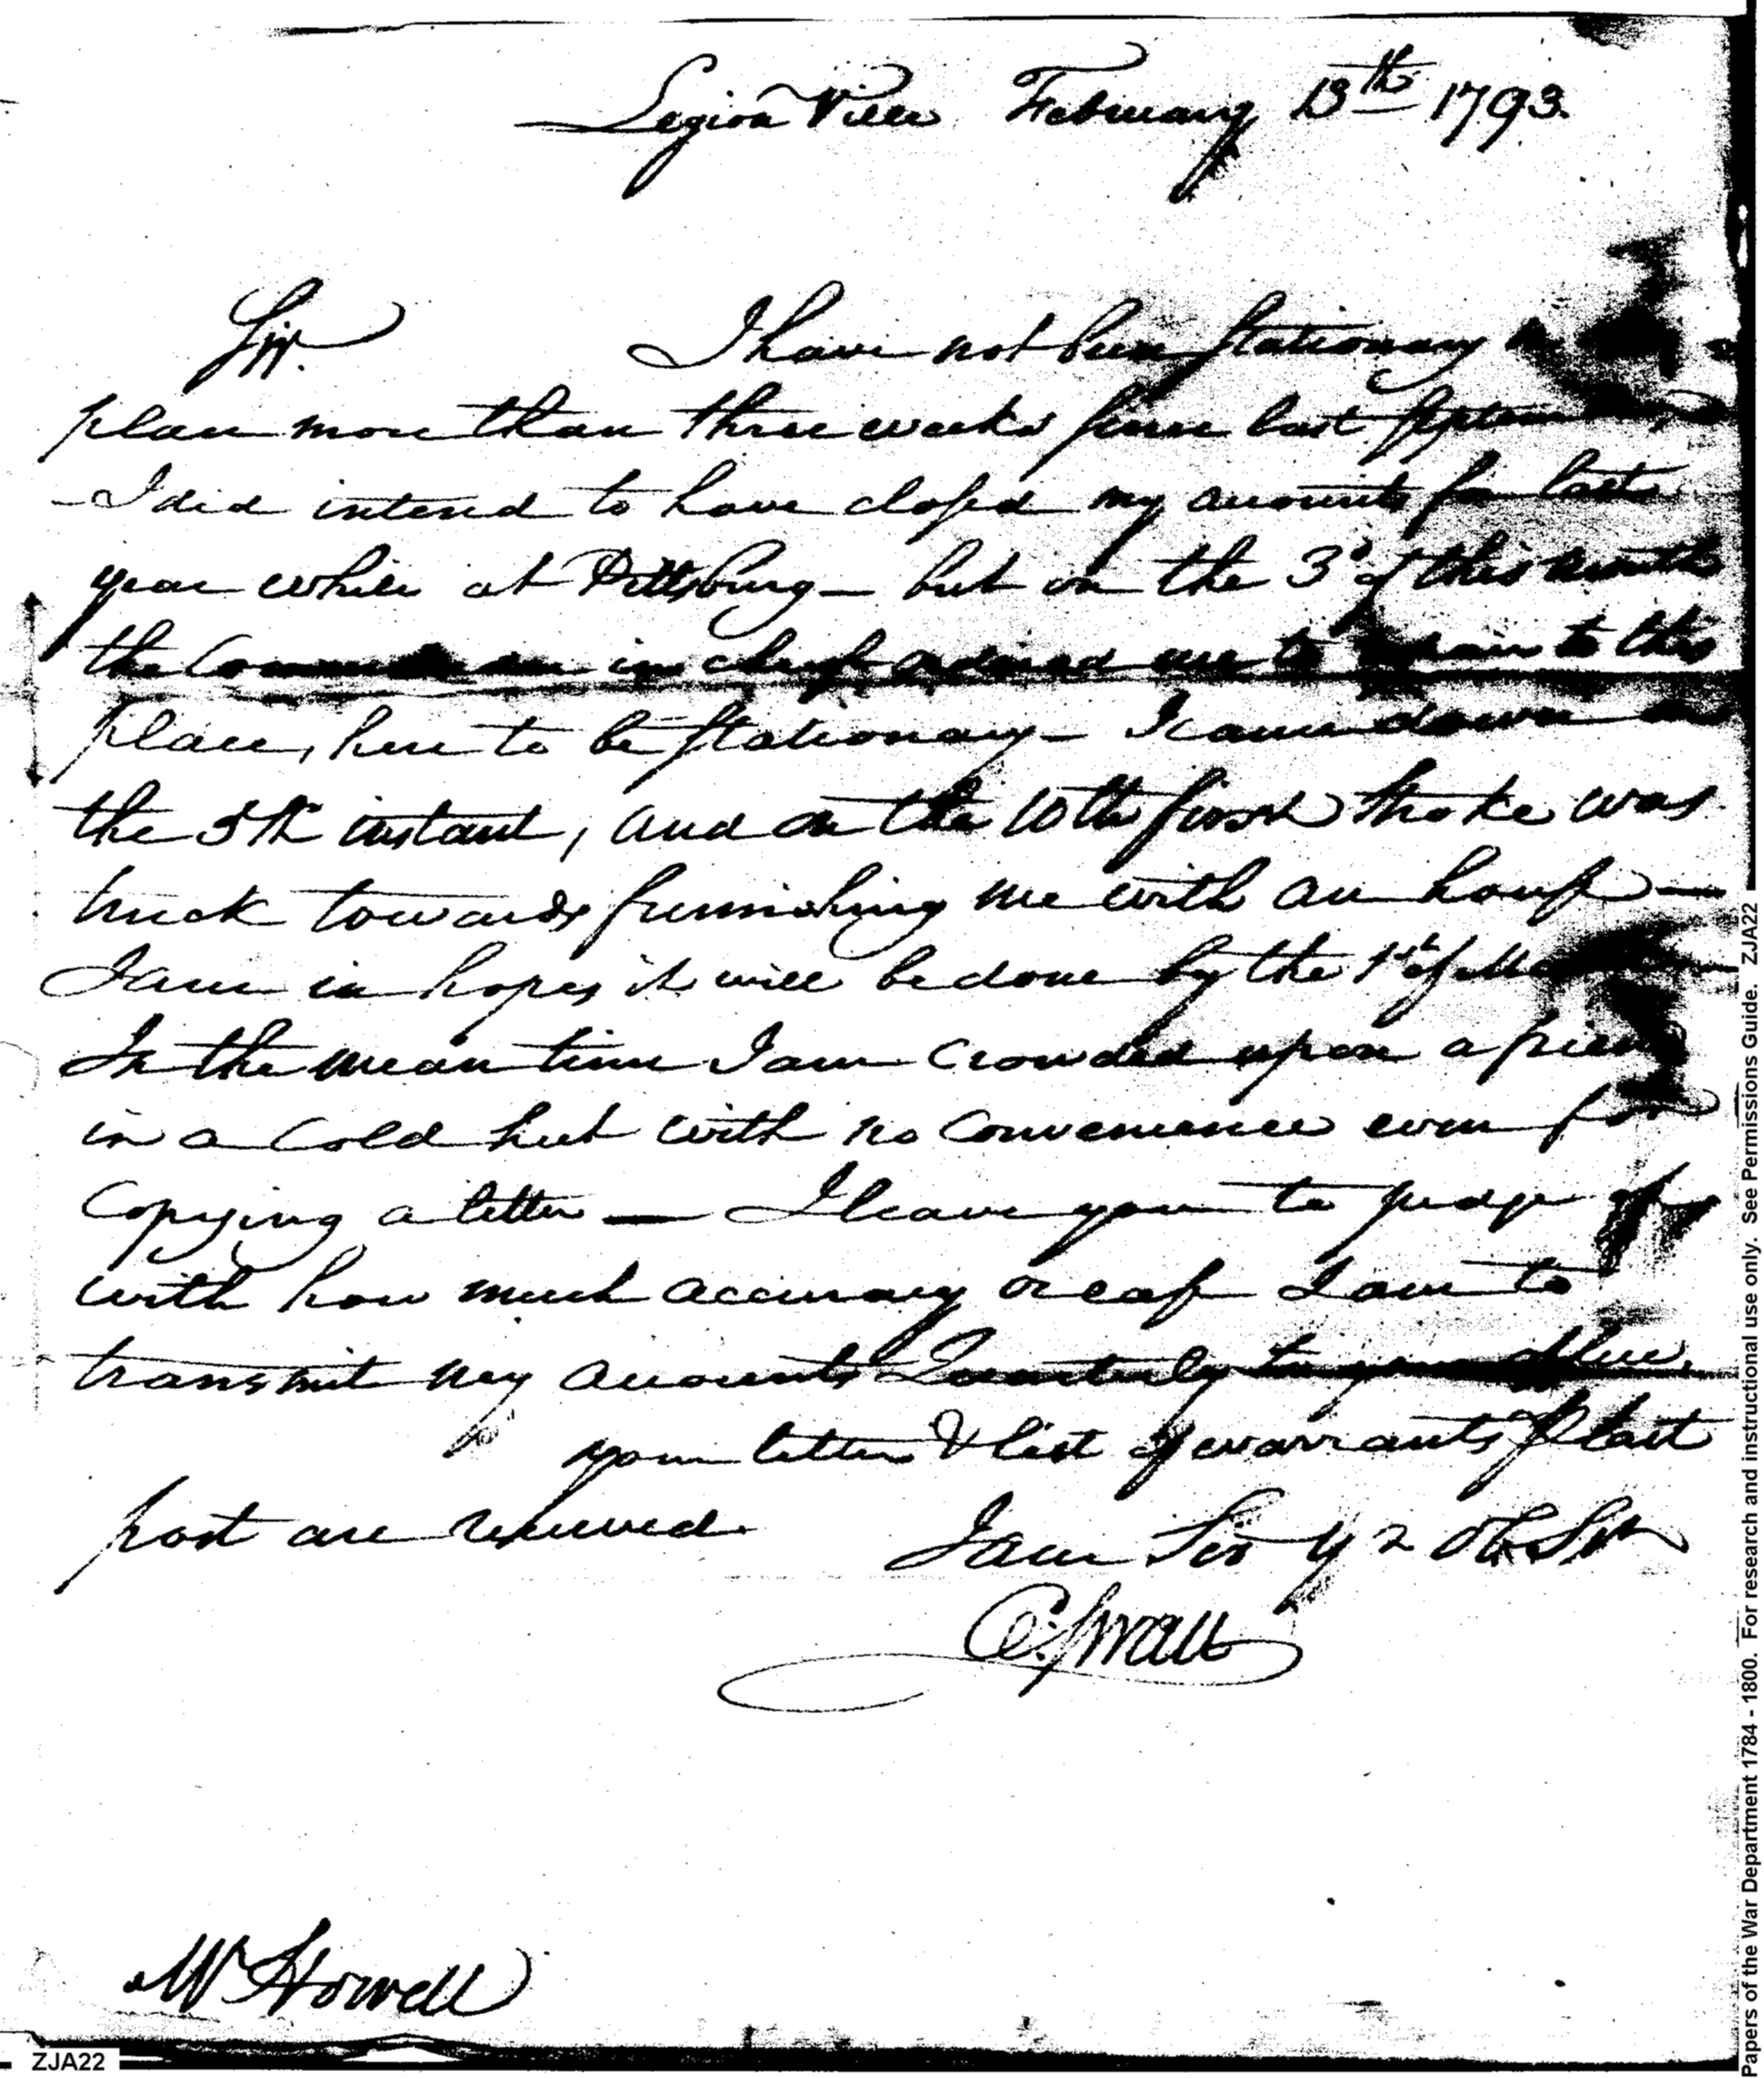 Legion Ville February 13th 1793.
Sir. I have not been stationary
place more than three weeks since last
- I did intend to have closed my accounts for last
year while at Pittsburg - but on the 3d of this month
the Commander in chief ordered me to repair to this
place, here to be stationary - I came down on
the 5th instant, and on the 10th first stroke was
struck towards furnishing me with an house -
I am in hopes it will be done by the 1st of
In the mean time I am crowded upon a friend
in a Cold hut with no Convenience even for
Copying a letter - I leave you to judge of
with how much accuracy or ease I am to
transmit my accounts Quarterly to your office.
your letter & list of warrants P last
post are received.
I am Sir Yr Ob Svt
C: Swan
Mr Howell
ZJA22
Papers of the War Department 1784 - 1800. For research and instructional use only. See Permissions Guide. ZJA22